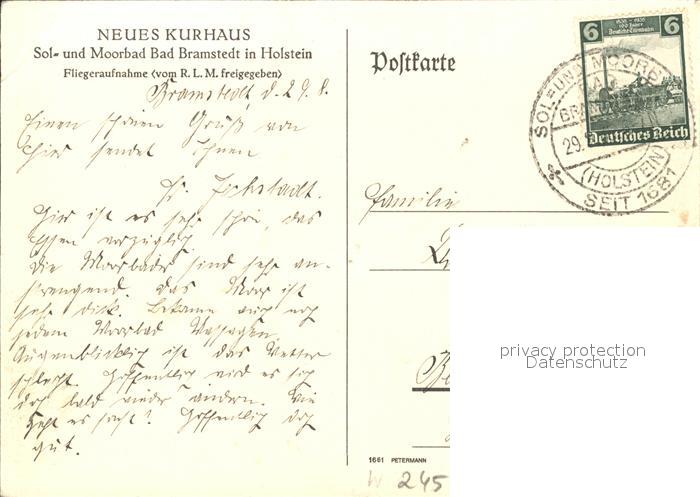 NEUES KURHAUS
Sol- und Moorbad Bad Bramstedt in Holstein
Fliegeraufnahme (vom R. L. M. freigegeben)
Bramstedt d. 29. 8.
Einen schönen Gruß von
hier sendet Ihnen
Fr.
Hier ist es sehr schön, das
Essen vorzüglich
die Moorbäder sind sehr an-
strengend. das Moor ist
sehr dick. Bekomme auch noch
jedem Moorbad Massagen
Augenblicklich ist das Wetter
schlecht. Hoffentlich wird es sich
doch bald wieder ändern. Wie
geht es sonst? Hoffentlich doch
gut.
Postkarte
6 6
1835 - 1935
100 Jahre
Deutsche Eisenbahn
Deutsches Reich
SOL= UND MOORB
BRAM
29.
(HOLSTEIN)
SEIT 1681
Familie
privacy protection
Datenschutz
1661 PETERMANN
W 245